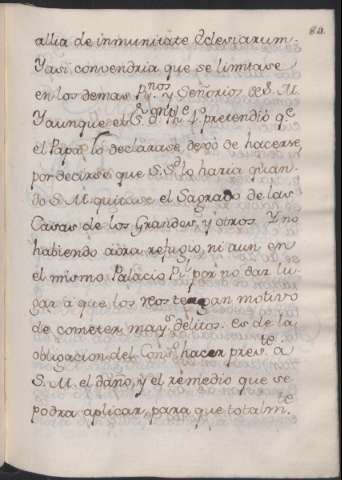 80.
allia de inmunitate Ecclesiarum.
Y asi convendria que se limitase
en los demas Rnos. y Señorios de S. M.
Y aunque el S. D. Ph. 4º pretendió qe
el Papa lo declarase, dexó de hacerse
por decirse que S. Sd. lo haria quan-
do S. M. quitase el Sagrado de las
Casas de los Grandes, y otros. Y no
habiendo aora refugio, ni aun en
el mismo Palacio Rl. por no dar lu-
gar a que los reos tengan motivo
de cometer mays. delitos. es de la
obligacion del Consº. hacer preste. a
S. M. el daño, y el remedio que se
podra aplicar, para que totalmte.